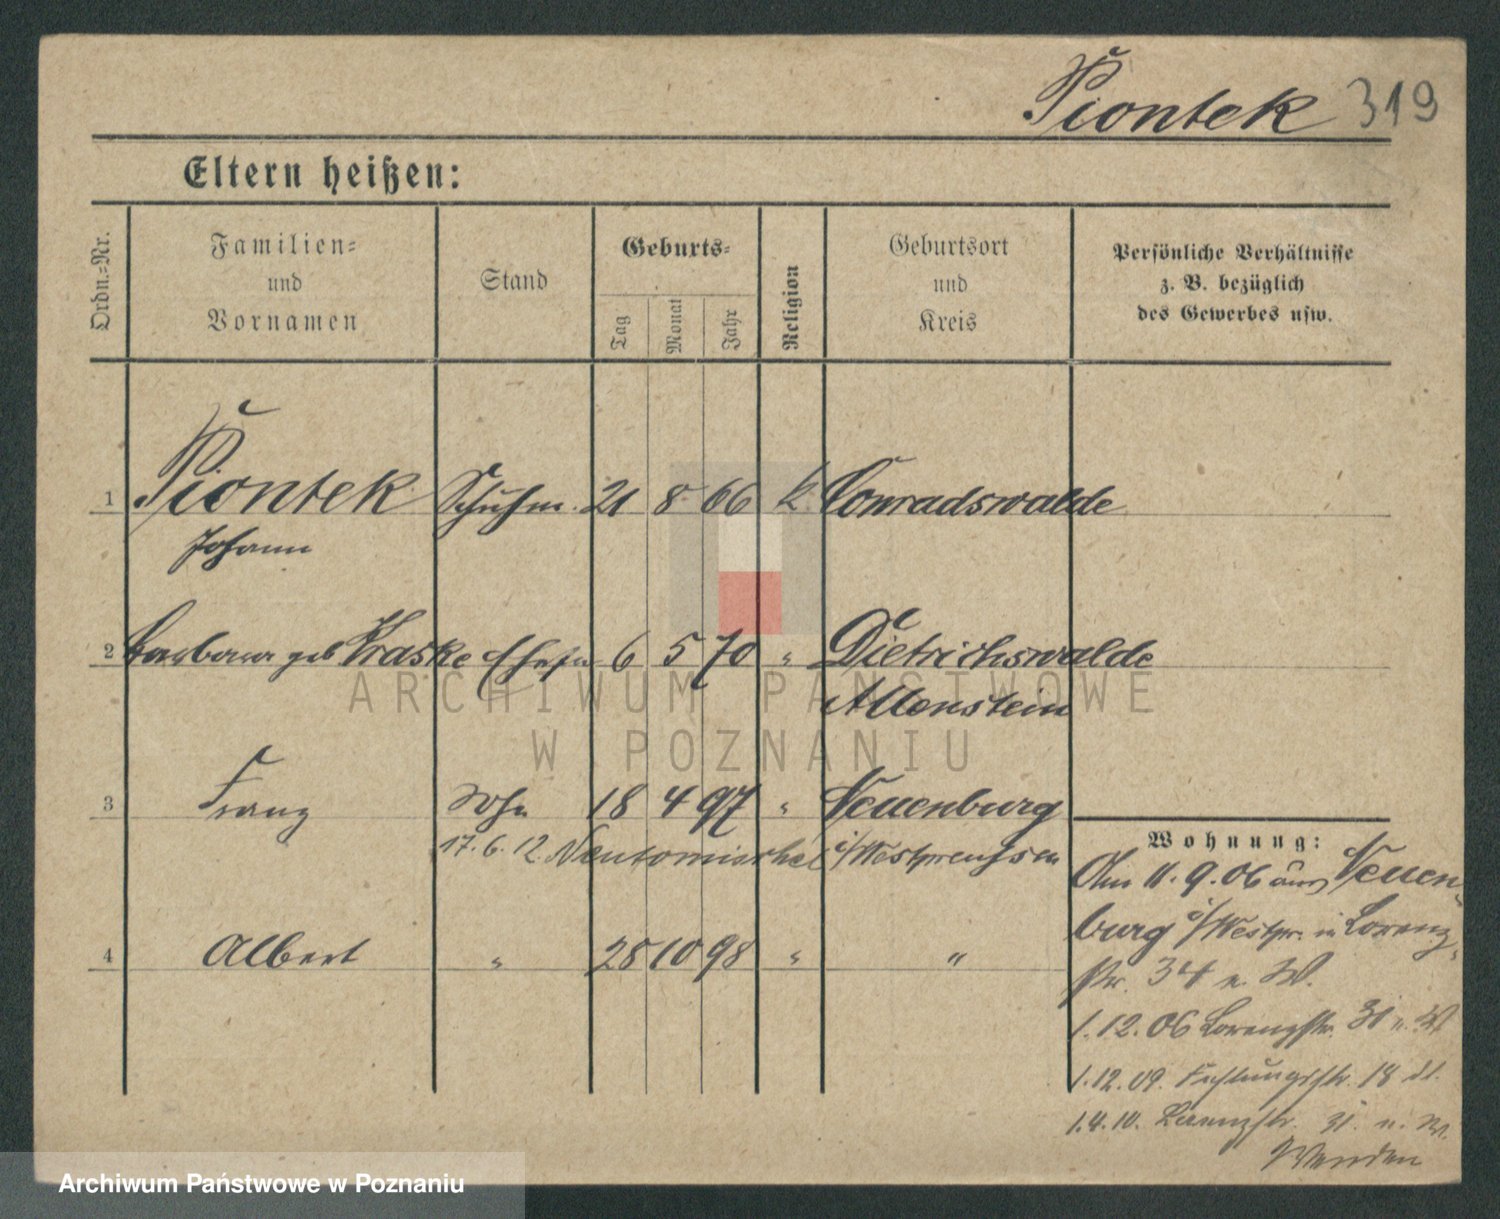 Piontek 319
Eltern heißen:
Ordn.=Nr.
Familien=
und
Vornamen
Stand
Geburts=
Tag
Monat
Jahr
Religion
Geburtsort
und
Kreis
Persönliche Verhältnisse
z. B. bezüglich
des Gewerbes usw.
1 Piontek Schuhm. 21 8 66 k. Conradswalde
Johann
2 Barbara geb Kraske Ehefr 6 5 70 " Dietrichswalde
Allenstein
3 Franz Sohn 18 4 97 " Neuenburg
17.6.12. Neutomischel i/Westpreussen
4 Albert " 28 10 98 " "
Wohnung:
Am 11.9.06 aus Neuen-
burg i/Westpr. in Lorenz-
str. 34 n. W.
1.12.06 Lorenzstr. 31 n. W
1.12.09. 18
1.4.10. Lorenzstr. 31. n. W.
Wenden
ARCHIWUM PAŃSTWOWE
W POZNANIU
Archiwum Państwowe w Poznaniu